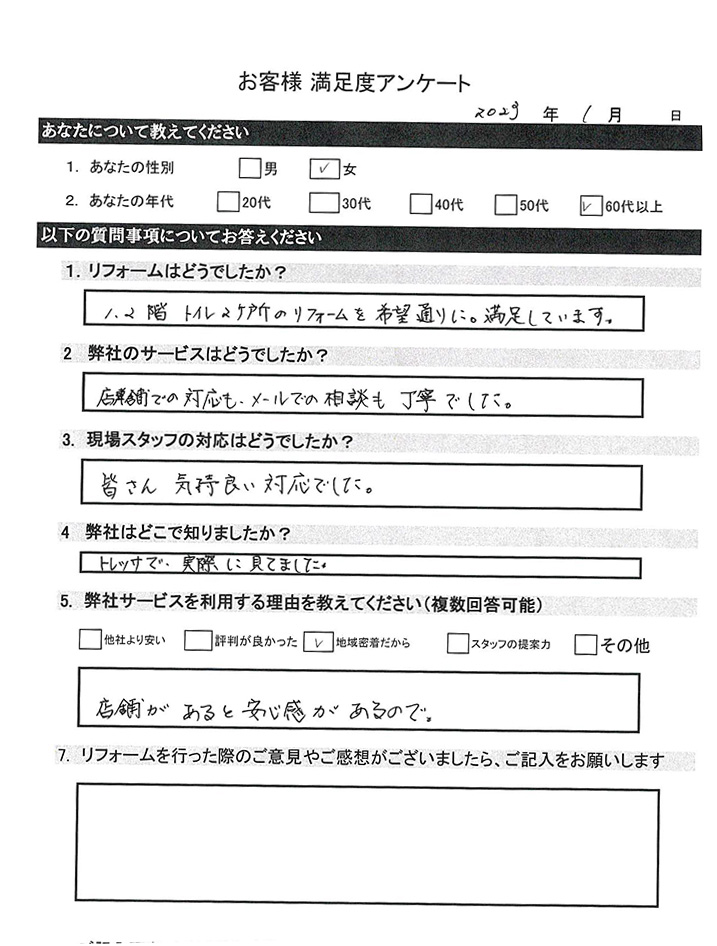 お客様 満足度アンケート
2023 年 1 月 日
あなたについて教えてください
1. あなたの性別 男 ✓ 女
2. あなたの年代 20代 30代 40代 50代 ✓ 60代以上
以下の質問事項についてお答えください
1. リフォームはどうでしたか？
1.2階 トイレ2ケ所のリフォームを希望通りに。満足しています。
2 弊社のサービスはどうでしたか？
店舗での対応も、メールでの相談も丁寧でした。
3. 現場スタッフの対応はどうでしたか？
皆さん 気持良い対応でした。
4 弊社はどこで知りましたか？
トレッサで、実際に見てました。
5. 弊社サービスを利用する理由を教えてください（複数回答可能）
他社より安い 評判が良かった ✓ 地域密着だから スタッフの提案力 その他
店舗があると安心感があるので。
7. リフォームを行った際のご意見やご感想がございましたら、ご記入をお願いします